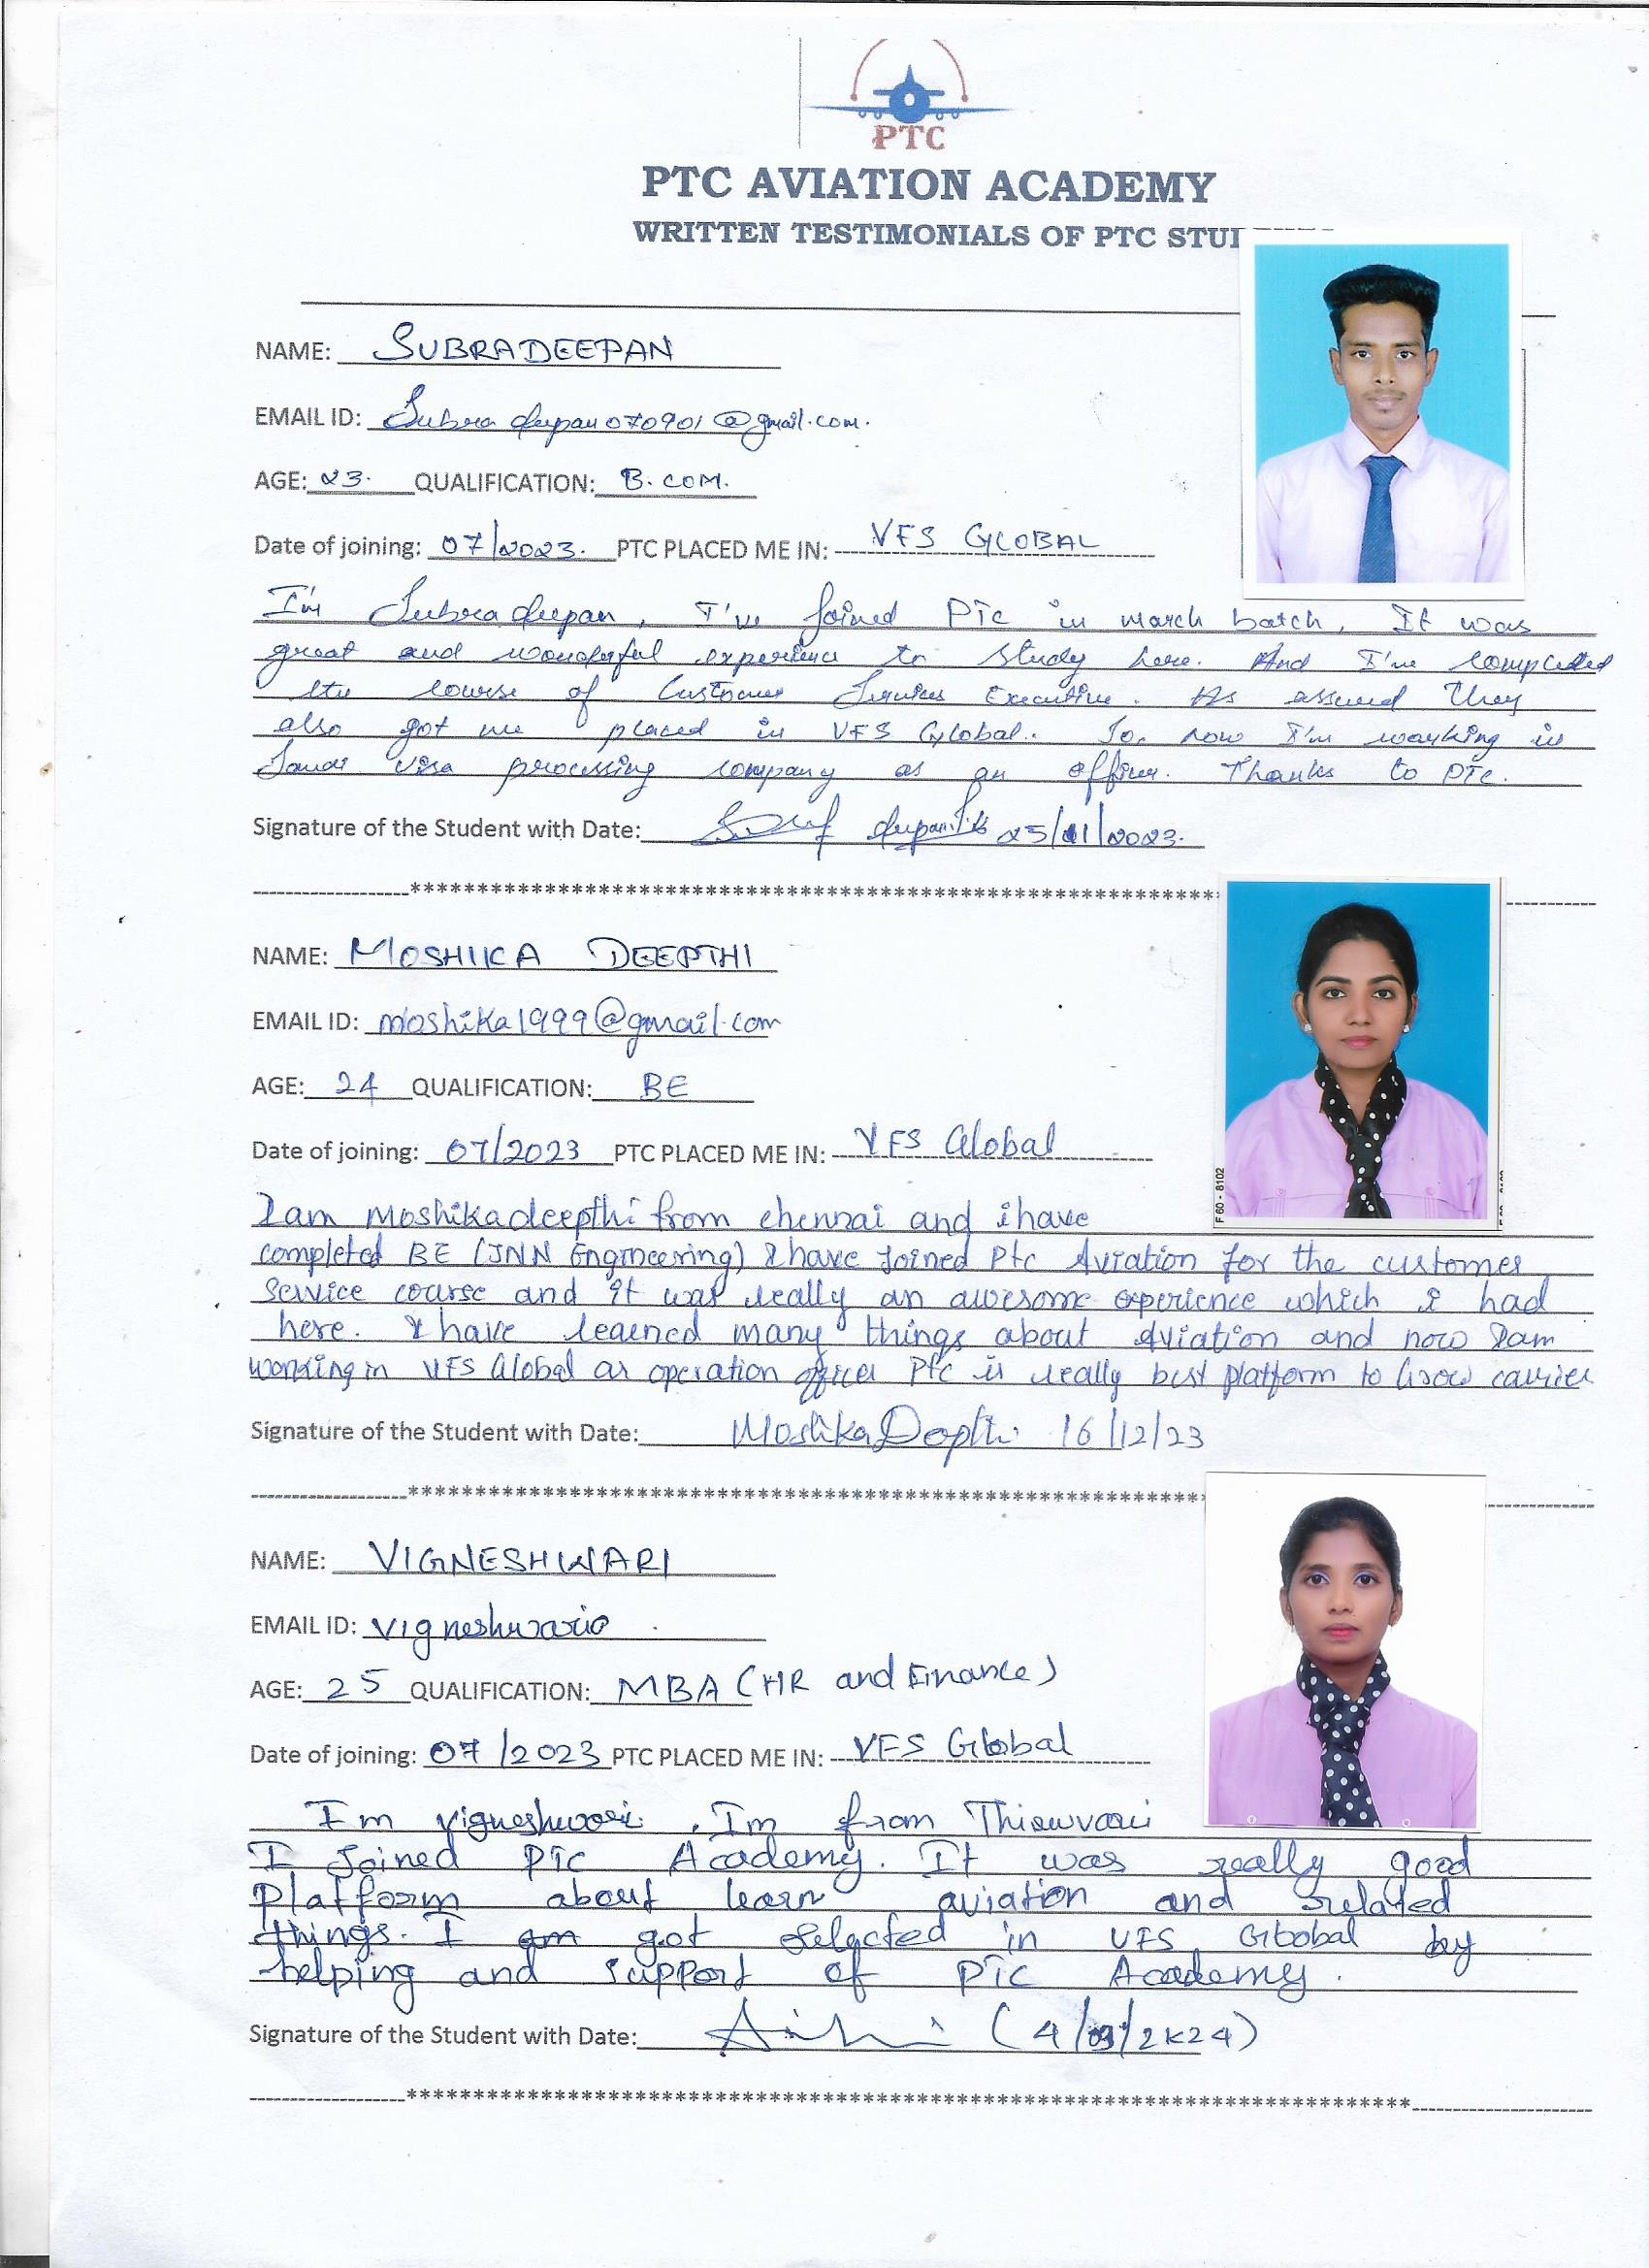 PTC
PTC AVIATION ACADEMY
WRITTEN TESTIMONIALS OF PTC
NAME: SUBRADEEPAN
EMAIL ID: Subradeepan070901@gmail.com.
AGE: 23. QUALIFICATION: B.COM.
Date of joining: 07/2023. PTC PLACED ME IN: VFS GLOBAL
I'm Subradeepan, I've joined PTC in march batch, It was
great and wonderful experience to study here. And I've completed
the course of Customer Services Executive. As assured They
also got me placed in VFS Global. So, now I'm working in
Saudi visa processing company as an officer. Thanks to PTC.
Signature of the Student with Date: 25/11/2023.
*****************************************************************
NAME: MOSHIKA DEEPTHI
EMAIL ID: moshika1999@gmail.com
AGE: 24 QUALIFICATION: BE
Date of joining: 07/2023 PTC PLACED ME IN: VFS Global
F 60 - 8102
I am Moshikadeepthi from chennai and i have
completed BE (JNN Engineering) I have Joined Ptc Aviation for the customer
Service course and it was really an awesome experience which i had
here. I have learned many things about Aviation and now I am
working in VFS Global as operation officer Ptc is really best platform to Grow carrier
Signature of the Student with Date: Moshika Deepthi 16/12/23
*****************************************************************
NAME: VIGNESHWARI
EMAIL ID: vigneshwario
AGE: 25 QUALIFICATION: MBA (HR and Finance)
Date of joining: 07/2023 PTC PLACED ME IN: VFS Global
Im vigneshwari. Im from
I Joined PTC Academy. It was really good
Platform about learn aviation and related
things. I got selected in VFS Global by
helping and support of PTC Academy.
Signature of the Student with Date: (4/03/2K24)
*****************************************************************